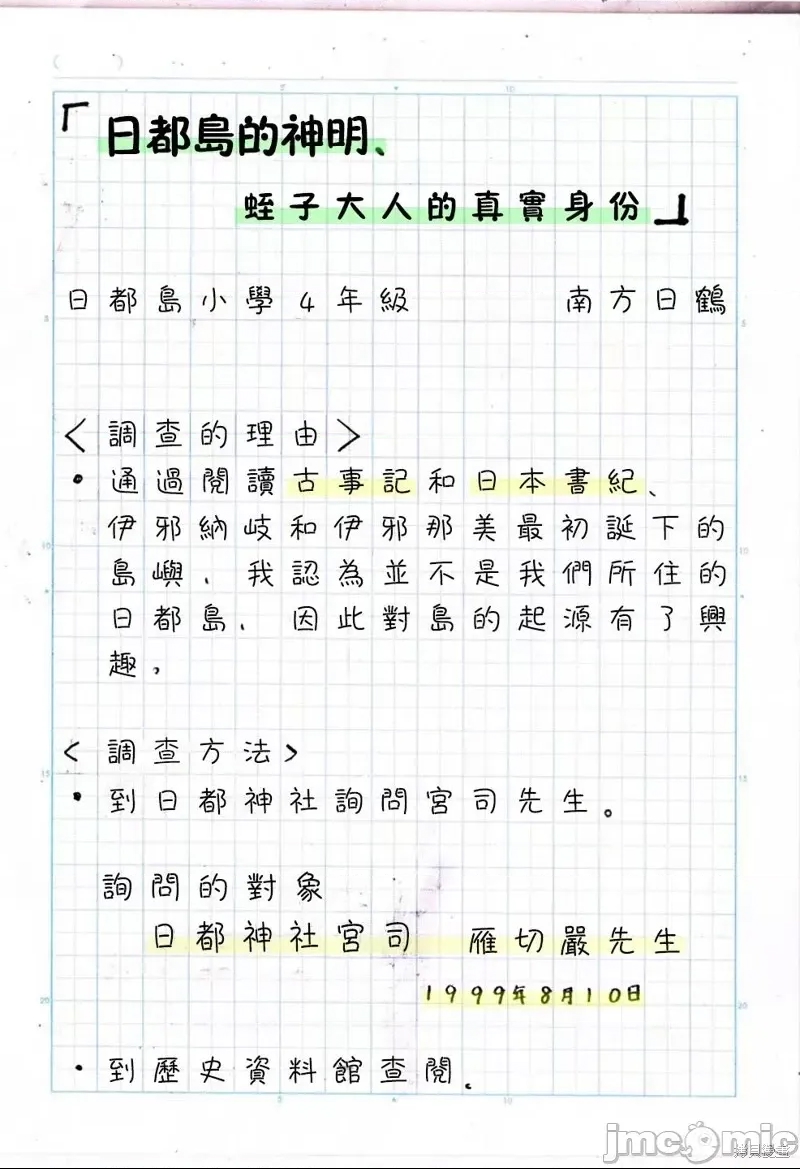 「日都島的神明、
蛭子大人的真實身份」
日都島小學4年級 南方日鶴
<調查的理由>
・通過閱讀古事記和日本書紀、
伊邪納岐和伊邪那美最初誕下的
島嶼、我認為並不是我們所住的
日都島、因此對島的起源有了興
趣,
<調查方法>
・到日都神社詢問宮司先生。
詢問的對象
日都神社宮司 雁切嚴先生
1999年8月10日
・到歷史資料館查閱.
5 10
5 5
10 10
15 15
20 20
5 10
jmcomic
拷貝漫畫